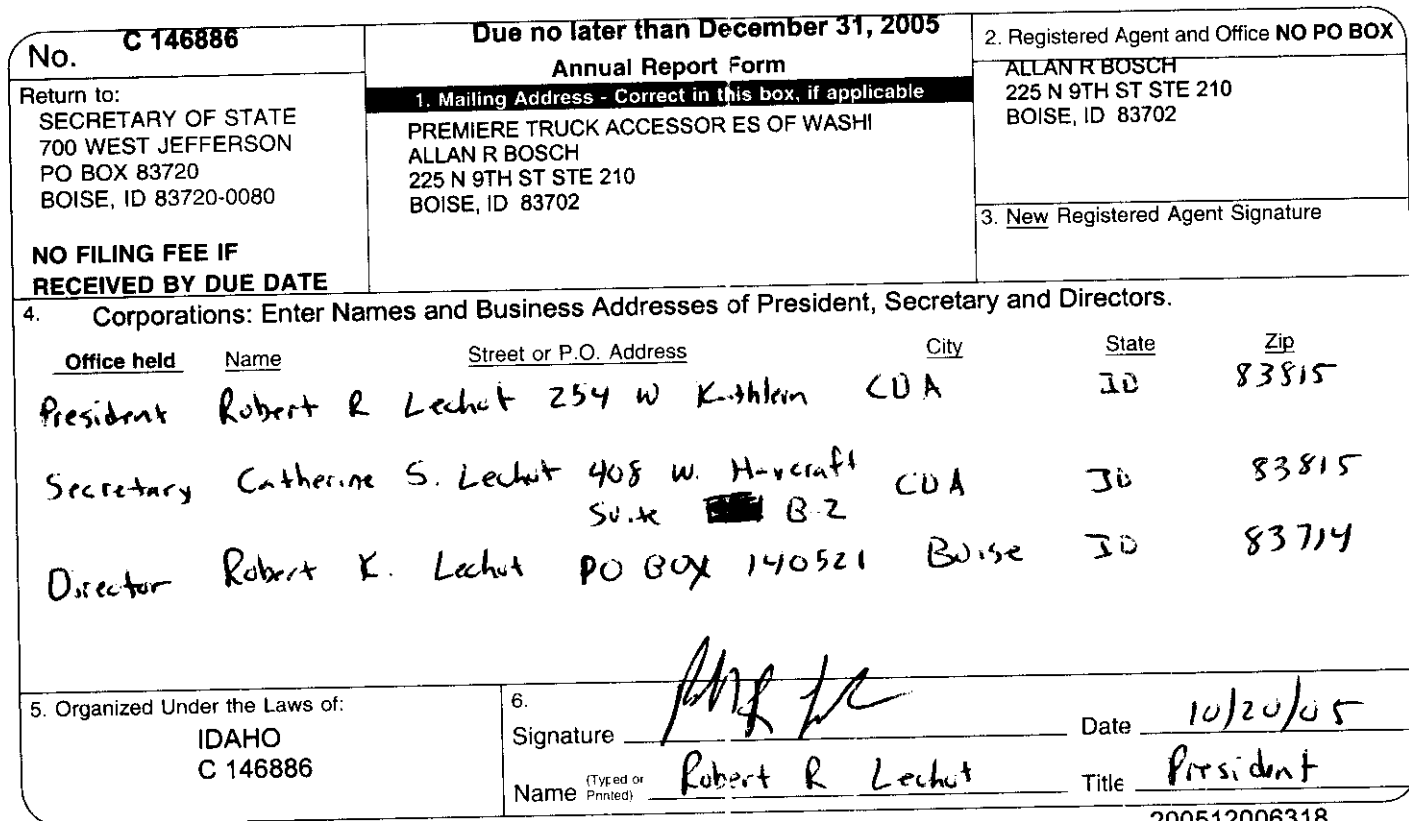 No. C 146886
Due no later than December 31, 2005
Annual Report Form
Return to:
SECRETARY OF STATE
700 WEST JEFFERSON
PO BOX 83720
BOISE, ID 83720-0080
NO FILING FEE IF
RECEIVED BY DUE DATE
1. Mailing Address - Correct in this box, if applicable
PREMIERE TRUCK ACCESSOR ES OF WASHI
ALLAN R BOSCH
225 N 9TH ST STE 210
BOISE, ID 83702
2. Registered Agent and Office NO PO BOX
ALLAN R BOSCH
225 N 9TH ST STE 210
BOISE, ID 83702
3. New Registered Agent Signature
4. Corporations: Enter Names and Business Addresses of President, Secretary and Directors.
Office held Name Street or P.O. Address City State Zip
President Robert R Lechot 254 W Kathleen CDA ID 83815
Secretary Catherine S. Lechot 408 W. Haycraft CDA ID 83815
Suite B-2
Director Robert K. Lechot PO BOX 140521 Boise ID 83714
5. Organized Under the Laws of:
IDAHO
C 146886
6.
Signature Date 10/20/05
Name (Typed or Printed) Robert R Lechot Title President
200512006318